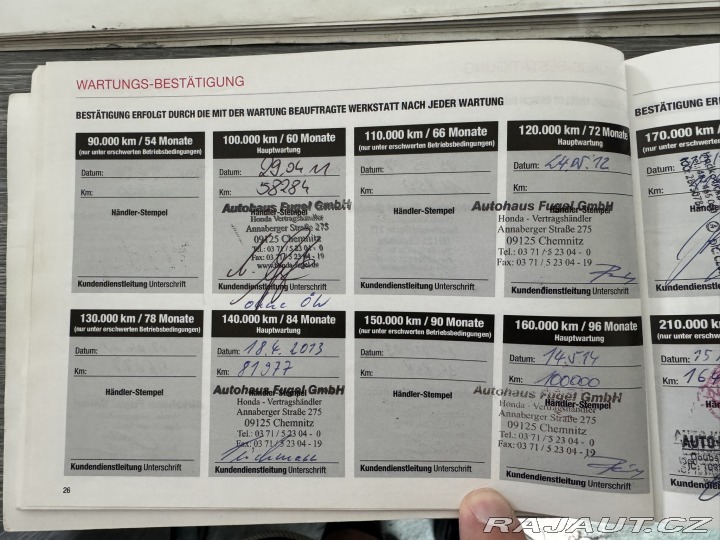 WARTUNGS-BESTÄTIGUNG
BESTÄTIGUNG ERFOLGT DURCH DIE MIT DER WARTUNG BEAUFTRAGTE WERKSTATT NACH JEDER WARTUNG
90.000 km / 54 Monate
(nur unter erschwerten Betriebsbedingungen)
Datum:
Km:
Händler-Stempel
Kundendienstleitung Unterschrift
100.000 km / 60 Monate
Hauptwartung
Datum: 29.04 11
Km: 58284
Händler-Stempel
Autohaus Fugel GmbH
Honda - Vertragshändler
Annaberger Straße 275
09125 Chemnitz
Tel.: 03 71 / 5 23 04 - 0
Fax: 03 71 / 5 23 04 - 19
www.honda-fugel.de
Kundendienstleitung Unterschrift
ohne ÖW
110.000 km / 66 Monate
(nur unter erschwerten Betriebsbedingungen)
Datum:
Km:
Händler-Stempel
Kundendienstleitung Unterschrift
120.000 km / 72 Monate
Hauptwartung
Datum:
Km:
Händler-Stempel
Autohaus Fugel GmbH
Honda - Vertragshändler
Annaberger Straße 275
09125 Chemnitz
Tel.: 03 71 / 5 23 04 - 0
Fax: 03 71 / 5 23 04 - 19
Kundendienstleitung Unterschrift
130.000 km / 78 Monate
(nur unter erschwerten Betriebsbedingungen)
Datum:
Km:
Händler-Stempel
Kundendienstleitung Unterschrift
140.000 km / 84 Monate
Hauptwartung
Datum: 18.4.2013
Km: 81977
Händler-Stempel
Autohaus Fugel GmbH
Honda - Vertragshändler
Annaberger Straße 275
09125 Chemnitz
Tel.: 03 71 / 5 23 04 - 0
Fax: 03 71 / 5 23 04 - 19
Kundendienstleitung Unterschrift
150.000 km / 90 Monate
(nur unter erschwerten Betriebsbedingungen)
Datum:
Km:
Händler-Stempel
Kundendienstleitung Unterschrift
160.000 km / 96 Monate
Hauptwartung
Datum: 14.5.14
Km: 100000
Händler-Stempel
Autohaus Fugel GmbH
Honda - Vertragshändler
Annaberger Straße 275
09125 Chemnitz
Tel.: 03 71 / 5 23 04 - 0
Fax: 03 71 / 5 23 04 - 19
Kundendienstleitung Unterschrift
26
BESTÄTIGUNG
170.000 km
(nur unter erschwerten
Datum:
Km:
Händler
Kundendienstleitung
210.000
(nur unter erschwerten
Datum: 15
Km: 16
Kundendienstleitung
RAJAUT.CZ